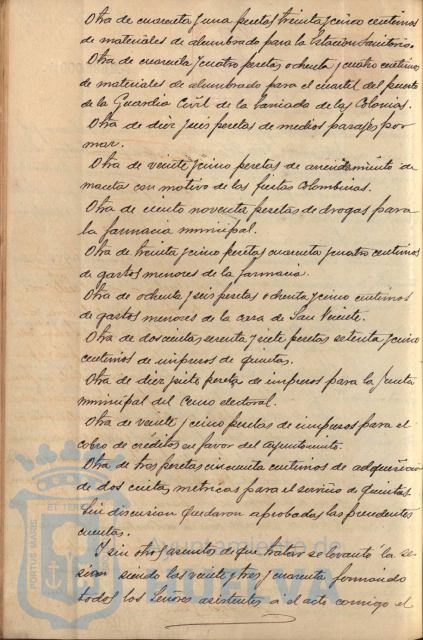 Otra de cuarenta y una pesetas treinta y cinco centimos
de materiales de alumbrado para la Estacion Sanitaria.
Otra de cuarenta y cuatro pesetas ochenta y cuatro centimos
de materiales de alumbrado para el cuartel del puesto
de la Guardia Civil de la barriada de las Colonias.
Otra de diez y seis pesetas de medios pasajes por
mar.
Otra de veinte y cinco pesetas de arrendamiento de
macetas con motivo de las fiestas Colombinas.
Otra de ciento noventa pesetas de drogas para
la farmacia municipal.
Otra de treinta y cinco pesetas cuarenta y cuatro centimos
de gastos menores de la farmacia.
Otra de ochenta y seis pesetas ochenta y cinco centimos
de gastos menores de la casa de San Vicente.
Otra de doscientas setenta y siete pesetas setenta y cinco
centimos de impresos de quintas.
Otra de diez y siete pesetas de impresos para la Junta
municipal del Censo electoral.
Otra de veinte y cinco pesetas de impresos para el
cobro de creditos a favor del Ayuntamiento.
Otra de tres pesetas cincuenta centimos de adquisicion
de dos cintas metricas para el servicio de quintas.
Sin discusion quedaron aprobadas las precedentes
cuentas.
Y sin otros asuntos de que tratar se levantó la se-
sion siendo las veinte y tres y cuarenta firmando
todos los Señores asistentes á el acto conmigo el
PORTUS MARIS
ET TERR
Ayuntamiento de